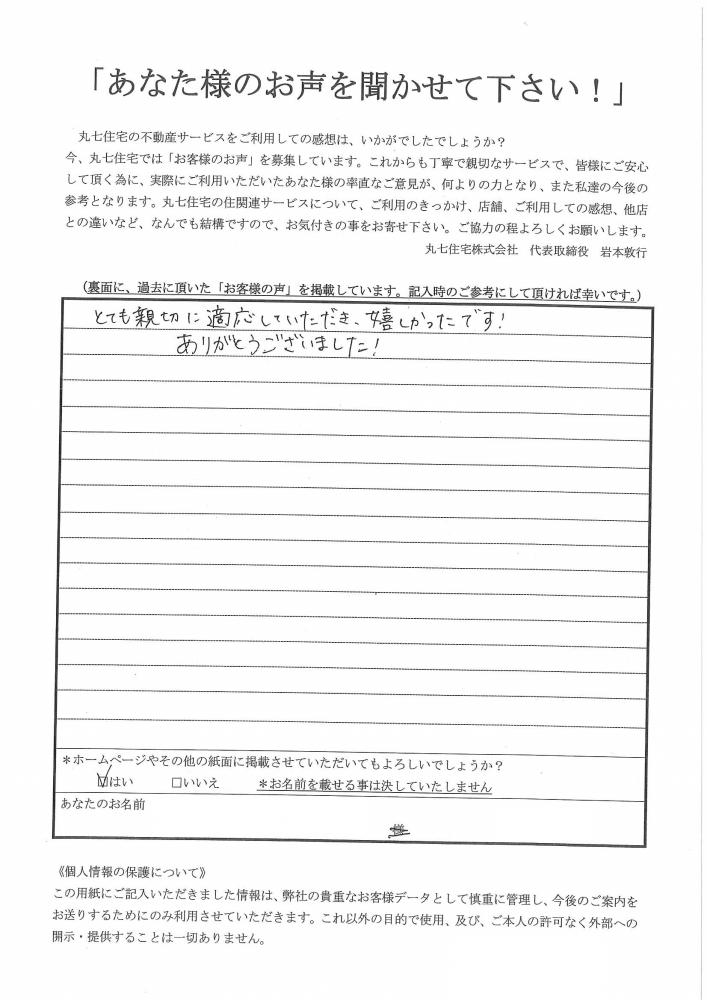 「あなた様のお声を聞かせて下さい！」
丸七住宅の不動産サービスをご利用しての感想は、いかがでしたでしょうか？
今、丸七住宅では「お客様のお声」を募集しています。これからも丁寧で親切なサービスで、皆様にご安心
して頂く為に、実際にご利用いただいたあなた様の率直なご意見が、何よりの力となり、また私達の今後の
参考となります。丸七住宅の住関連サービスについて、ご利用のきっかけ、店舗、ご利用しての感想、他店
との違いなど、なんでも結構ですので、お気付きの事をお寄せ下さい。ご協力の程よろしくお願いします。
丸七住宅株式会社　代表取締役　岩本敦行
（裏面に、過去に頂いた「お客様の声」を掲載しています。記入時のご参考にして頂ければ幸いです。）
とても親切に適応していただき、嬉しかったです！
ありがとうございました！
＊ホームページやその他の紙面に掲載させていただいてもよろしいでしょうか？
☑はい　□いいえ　＊お名前を載せる事は決していたしません
あなたのお名前
様
《個人情報の保護について》
この用紙にご記入いただきました情報は、弊社の貴重なお客様データとして慎重に管理し、今後のご案内を
お送りするためにのみ利用させていただきます。これ以外の目的で使用、及び、ご本人の許可なく外部への
開示・提供することは一切ありません。